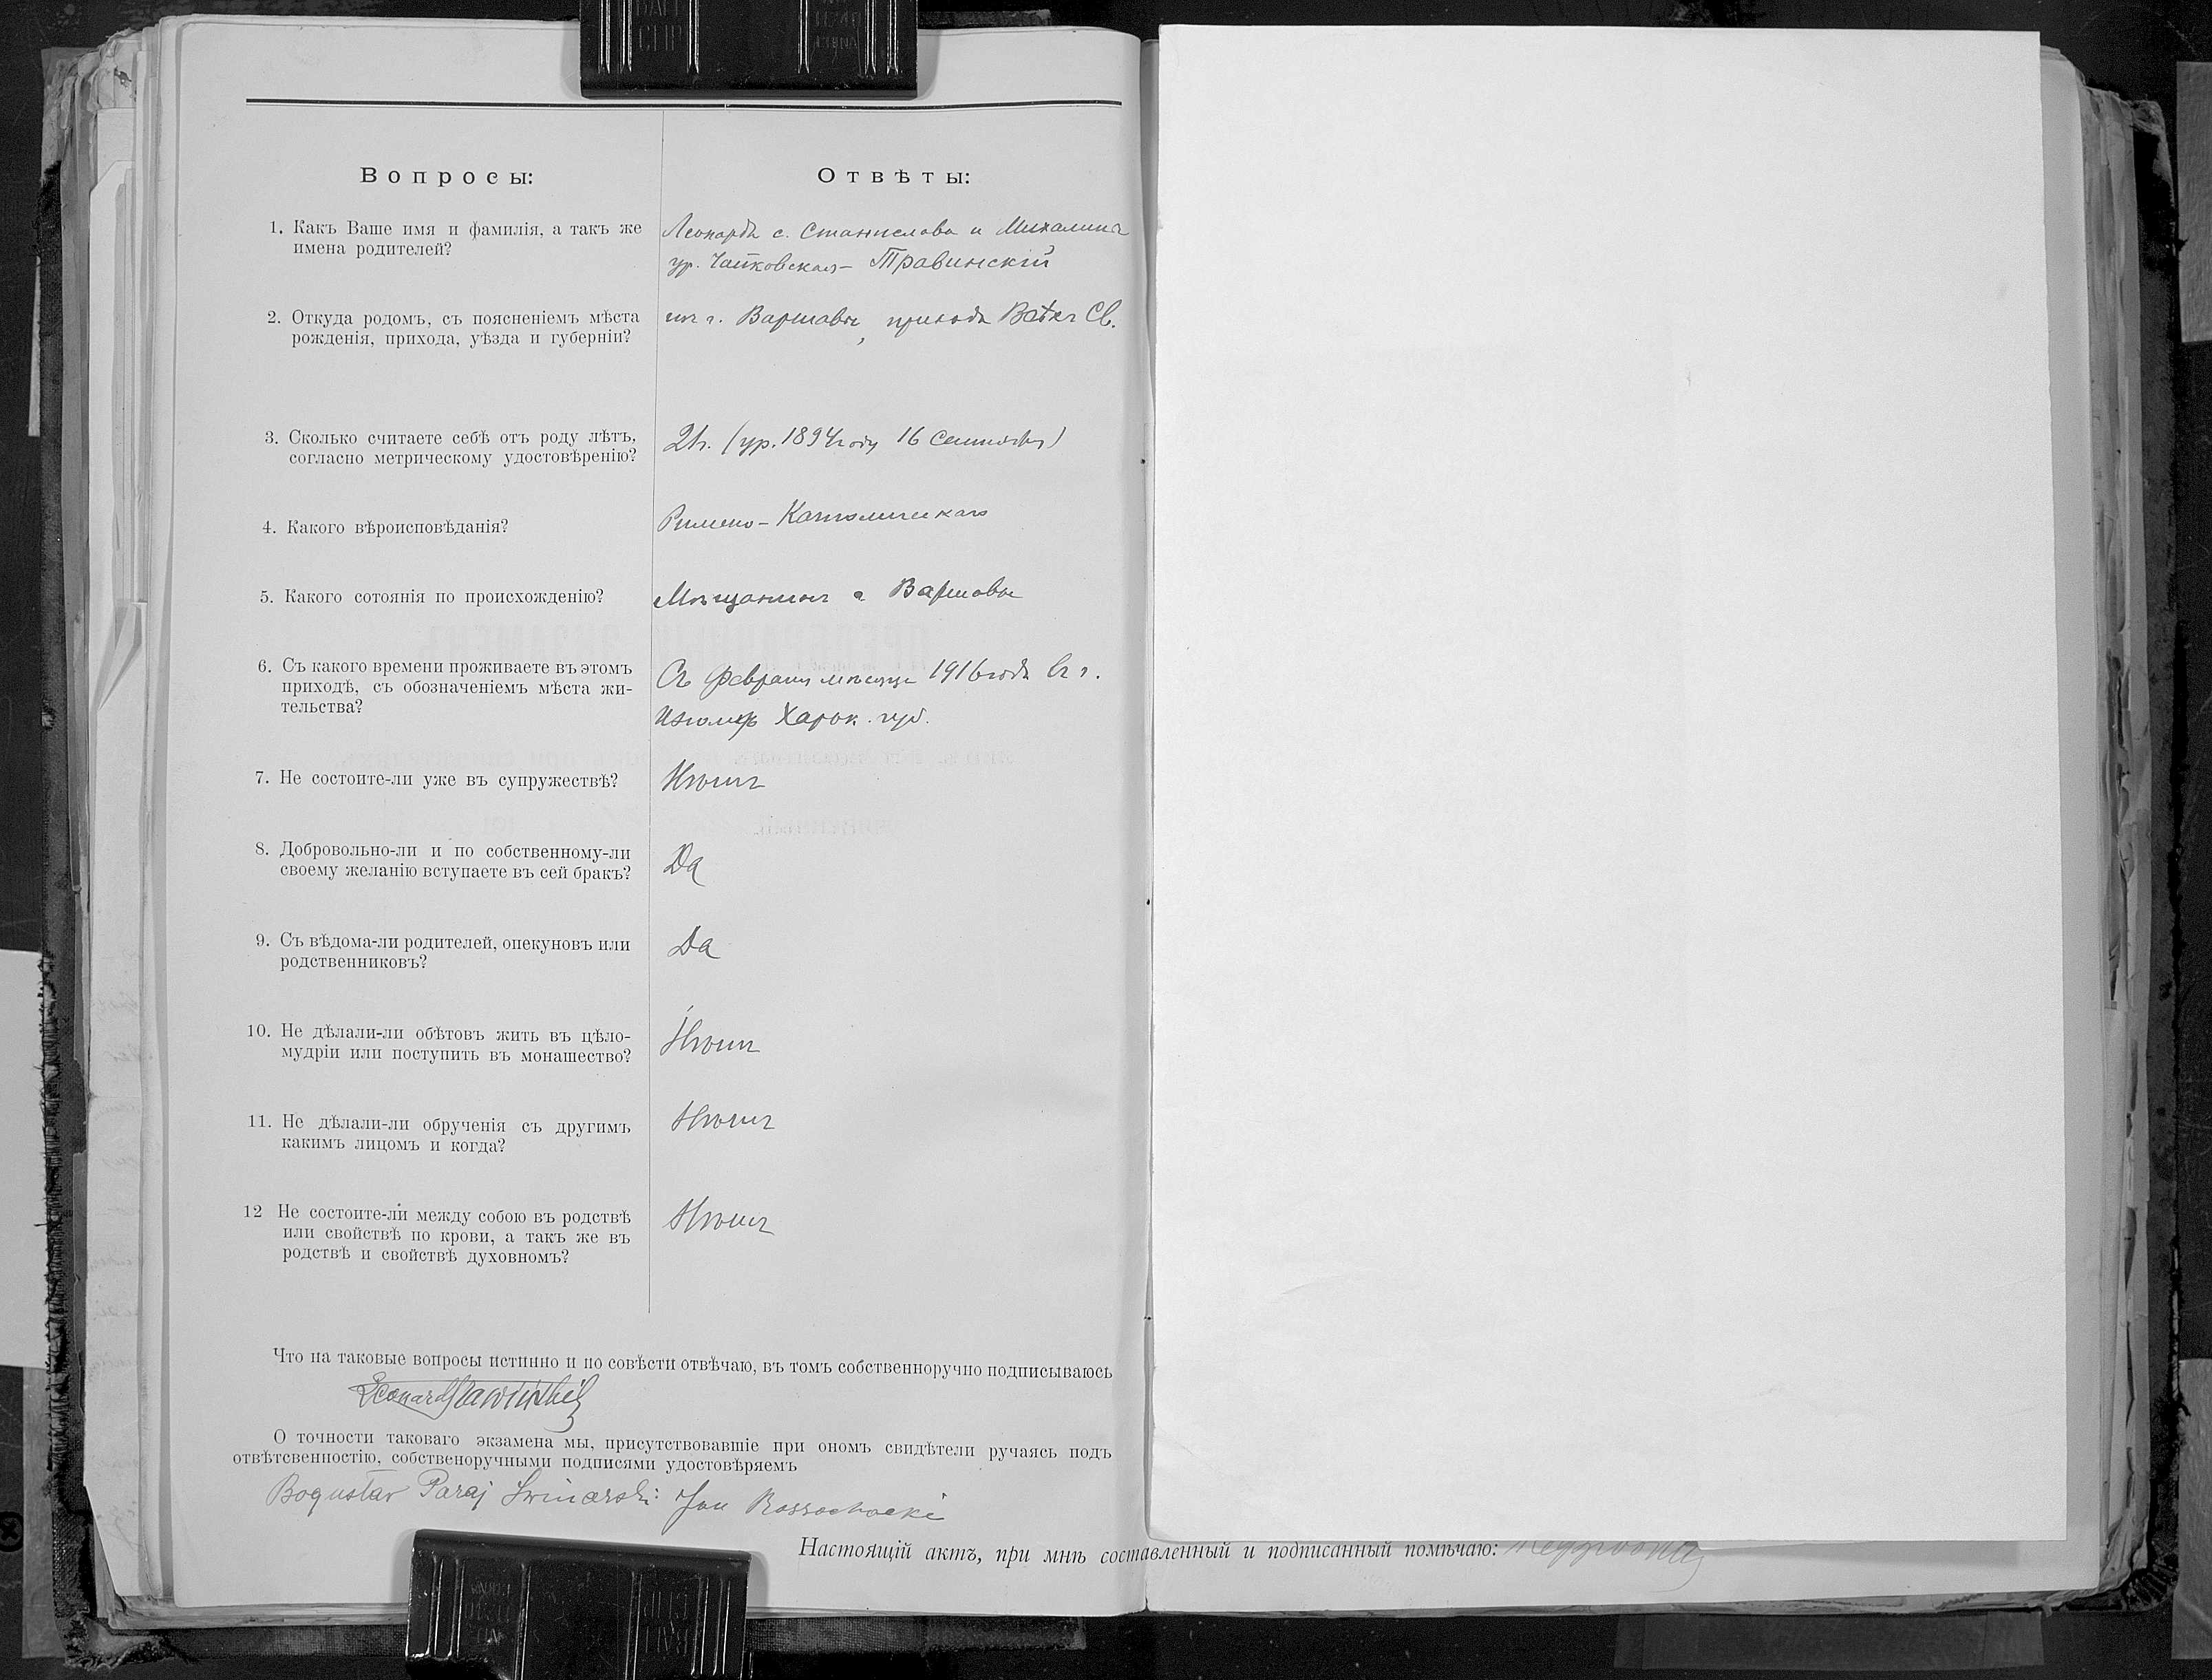 Вопросы:
Отвѣты:
1. Какъ Ваше имя и фамилія, а такъ же
имена родителей?
Леонардъ с. Станислава и Михалина
ур. Чайковская - Травинскій
2. Откуда родомъ, съ поясненіемъ мѣста
рожденія, прихода, уѣзда и губерніи?
изъ г. Варшавы, прихода Всѣхъ Св.
3. Сколько считаете себѣ отъ роду лѣтъ,
согласно метрическому удостовѣренію?
21 (ур. 1894 году 16 Сентября)
4. Какого вѣроисповѣданія?
Римско-Католическаго
5. Какого сотоянія по происхожденію?
Мѣщанинъ г Варшавы
6. Съ какого времени проживаете въ этомъ
приходѣ, съ обозначеніемъ мѣста жи-
тельства?
Съ Февраля мѣсяца 1916 года въ г.
Изюмѣ Харьк. губ.
7. Не состоите-ли уже въ супружествѣ?
Нѣтъ
8. Добровольно-ли и по собственному-ли
своему желанію вступаете въ сей бракъ?
Да
9. Съ вѣдома-ли родителей, опекуновъ или
родственниковъ?
Да
10. Не дѣлали-ли обѣтовъ жить въ цѣло-
мудріи или поступить въ монашество?
Нѣтъ
11. Не дѣлали-ли обрученія съ другимъ
какимъ лицомъ и когда?
Нѣтъ
12 Не состоите-ли между собою въ родствѣ
или свойствѣ по крови, а такъ же въ
родствѣ и свойствѣ духовномъ?
Нѣтъ
Что на таковые вопросы истинно и по совѣсти отвѣчаю, въ томъ собственноручно подписываюсь
Leonard Trawiński
О точности таковаго экзамена мы, присутствовавшіе при ономъ свидѣтели ручаясь подъ
отвѣтсвенностію, собственоручными подписями удостовѣряемъ
Bogusław Poraj Swinarski Jan Rossochacki
Настоящій актъ, при мнѣ составленный и подписанный помѣчаю: